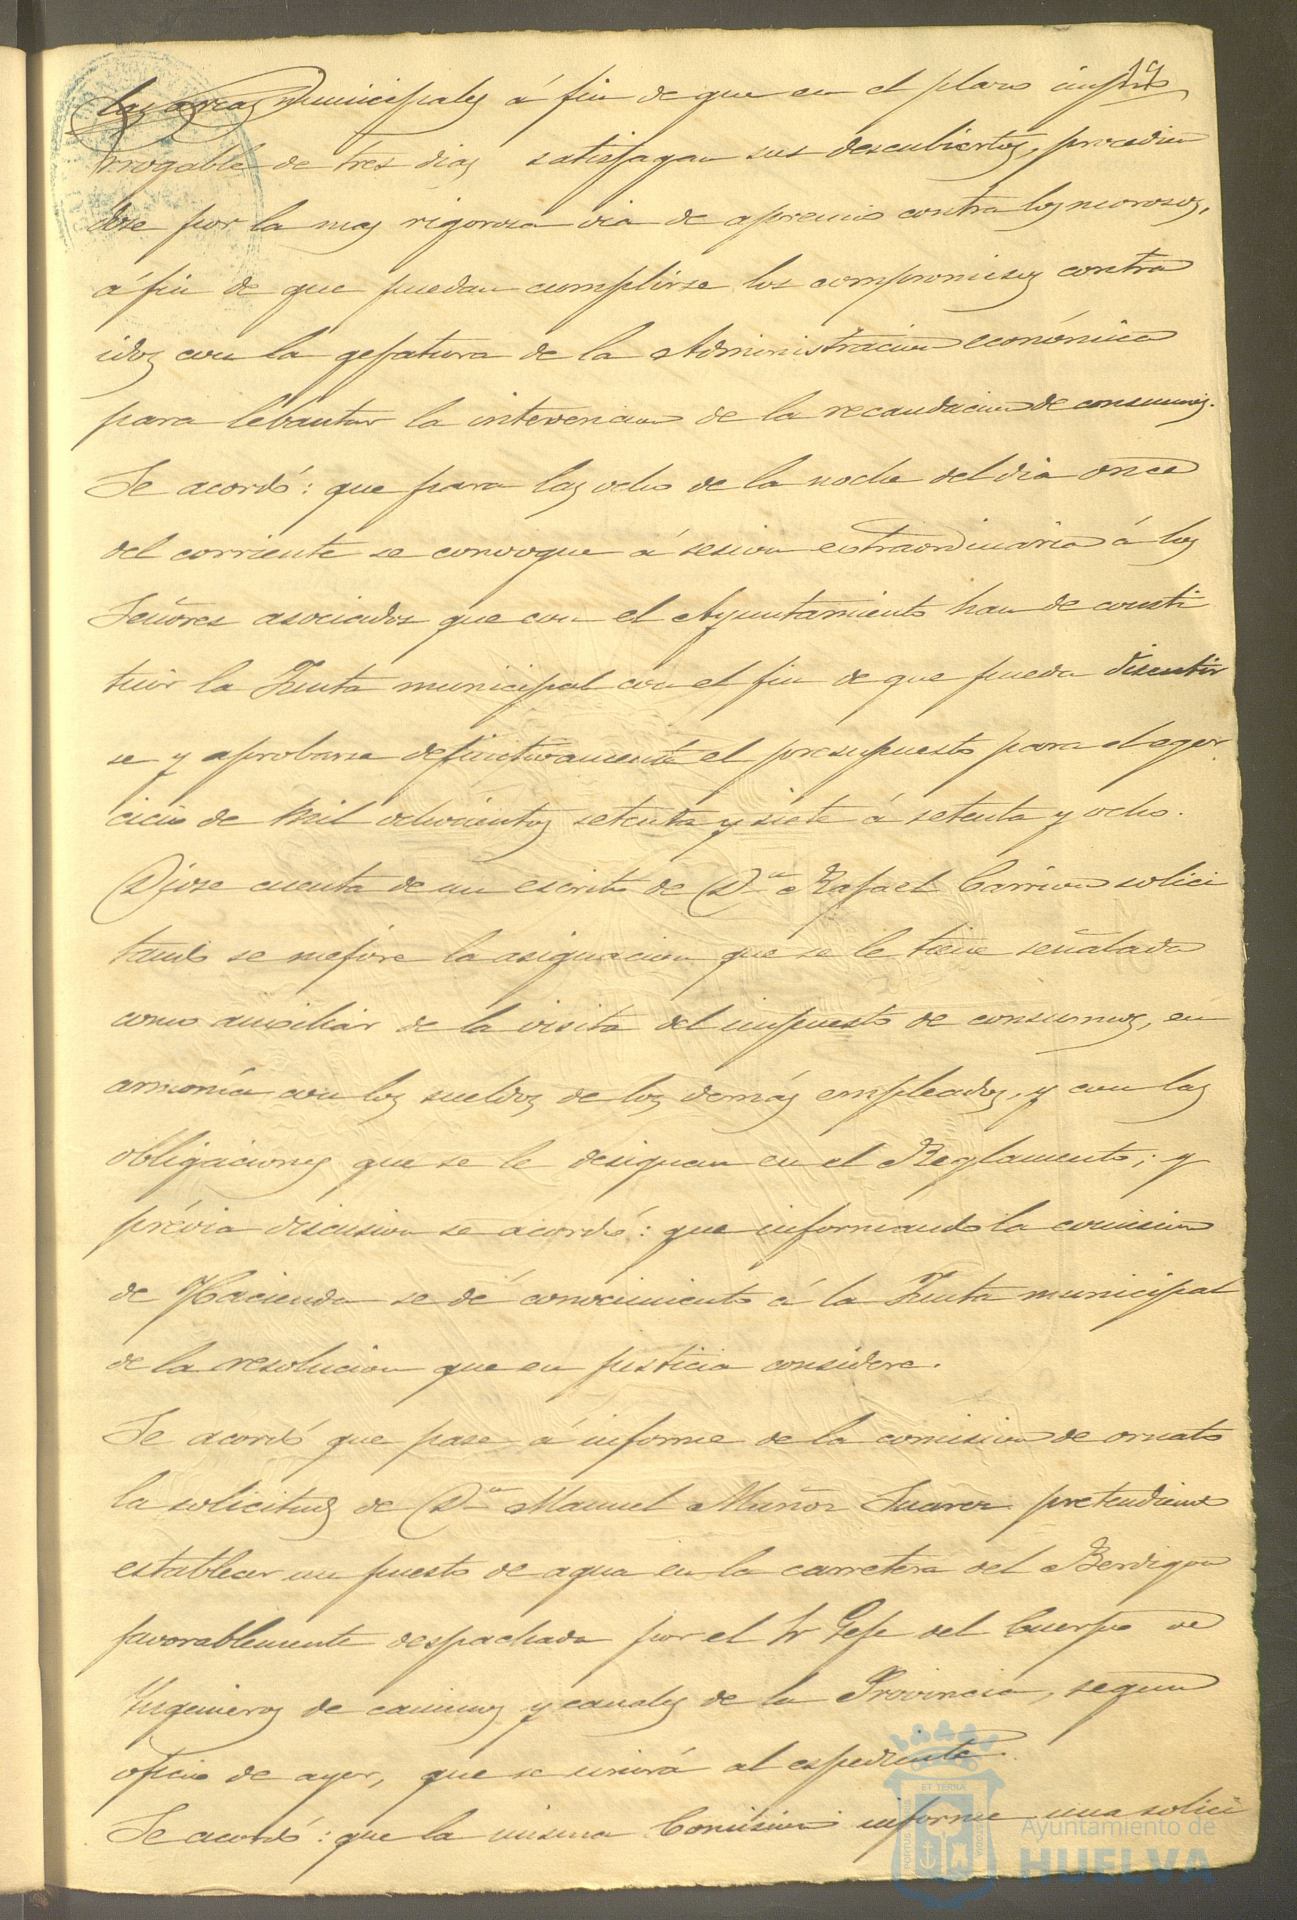 las arcas Municipales á fin de que en el plazo impro
rrogable de tres dias satisfagan sus descubiertos, procedien
dose por la mas rigorosa via de apremio contra los morosos,
á fin de que puedan cumplirse los compromisos contra
idos con la gefatura de la Administracion económica
para lebantar la intervencion de la recaudacion de consumos.
Se acordó: que para las ocho de la noche del dia once
del corriente se convoque á sesion estraordinaria á los
Señores asociados que con el Ayuntamiento han de consti
tuir la Junta municipal con el fin de que pueda discutir
se y aprobarse definitivamente el presupuesto para el eger
cicio de mil ochocientos setenta y siete á setenta y ocho.
Diose cuenta de un escrito de Dn Rafael Carrion solici
tando se mejore la asignacion que se le tiene señalada
como ausiliar de la visita del impuesto de consumos, en
armonía con los sueldos de los demás empleados, y con las
obligaciones que se le designan en el Reglamento; y
prévia discusion se acordó: que informando la comision
de Hacienda se dé conocimiento á la Junta municipal
de la resolucion que en justicia considere.
Se acordó que pase á informe de la comision de ornato
la solicitud de Dn Manuel Muñoz Suarez pretendiendo
establecer un puesto de agua en la carretera del Berdigon
favorablemente despachada por el Sr Gefe del Cuerpo de
Ingenieros de caminos y canales de la Provincia, segun
oficio de ayer, que se unirá al espediente.
Se acordó: que la misma Comision informe una solici
ET TERRAE
PORTUS
CUSTODIA
Ayuntamiento de
HUELVA